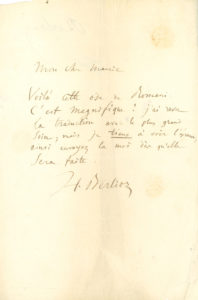 Mon cher Maurice
Voilà cette ode de Romani.
C'est magnifique! j'ai revu
la traduction avec le plus grand
soin; mais je tiens à voir l'épreuve
ainsi envoyez la moi dès qu'elle
sera faite.
H. Berlioz